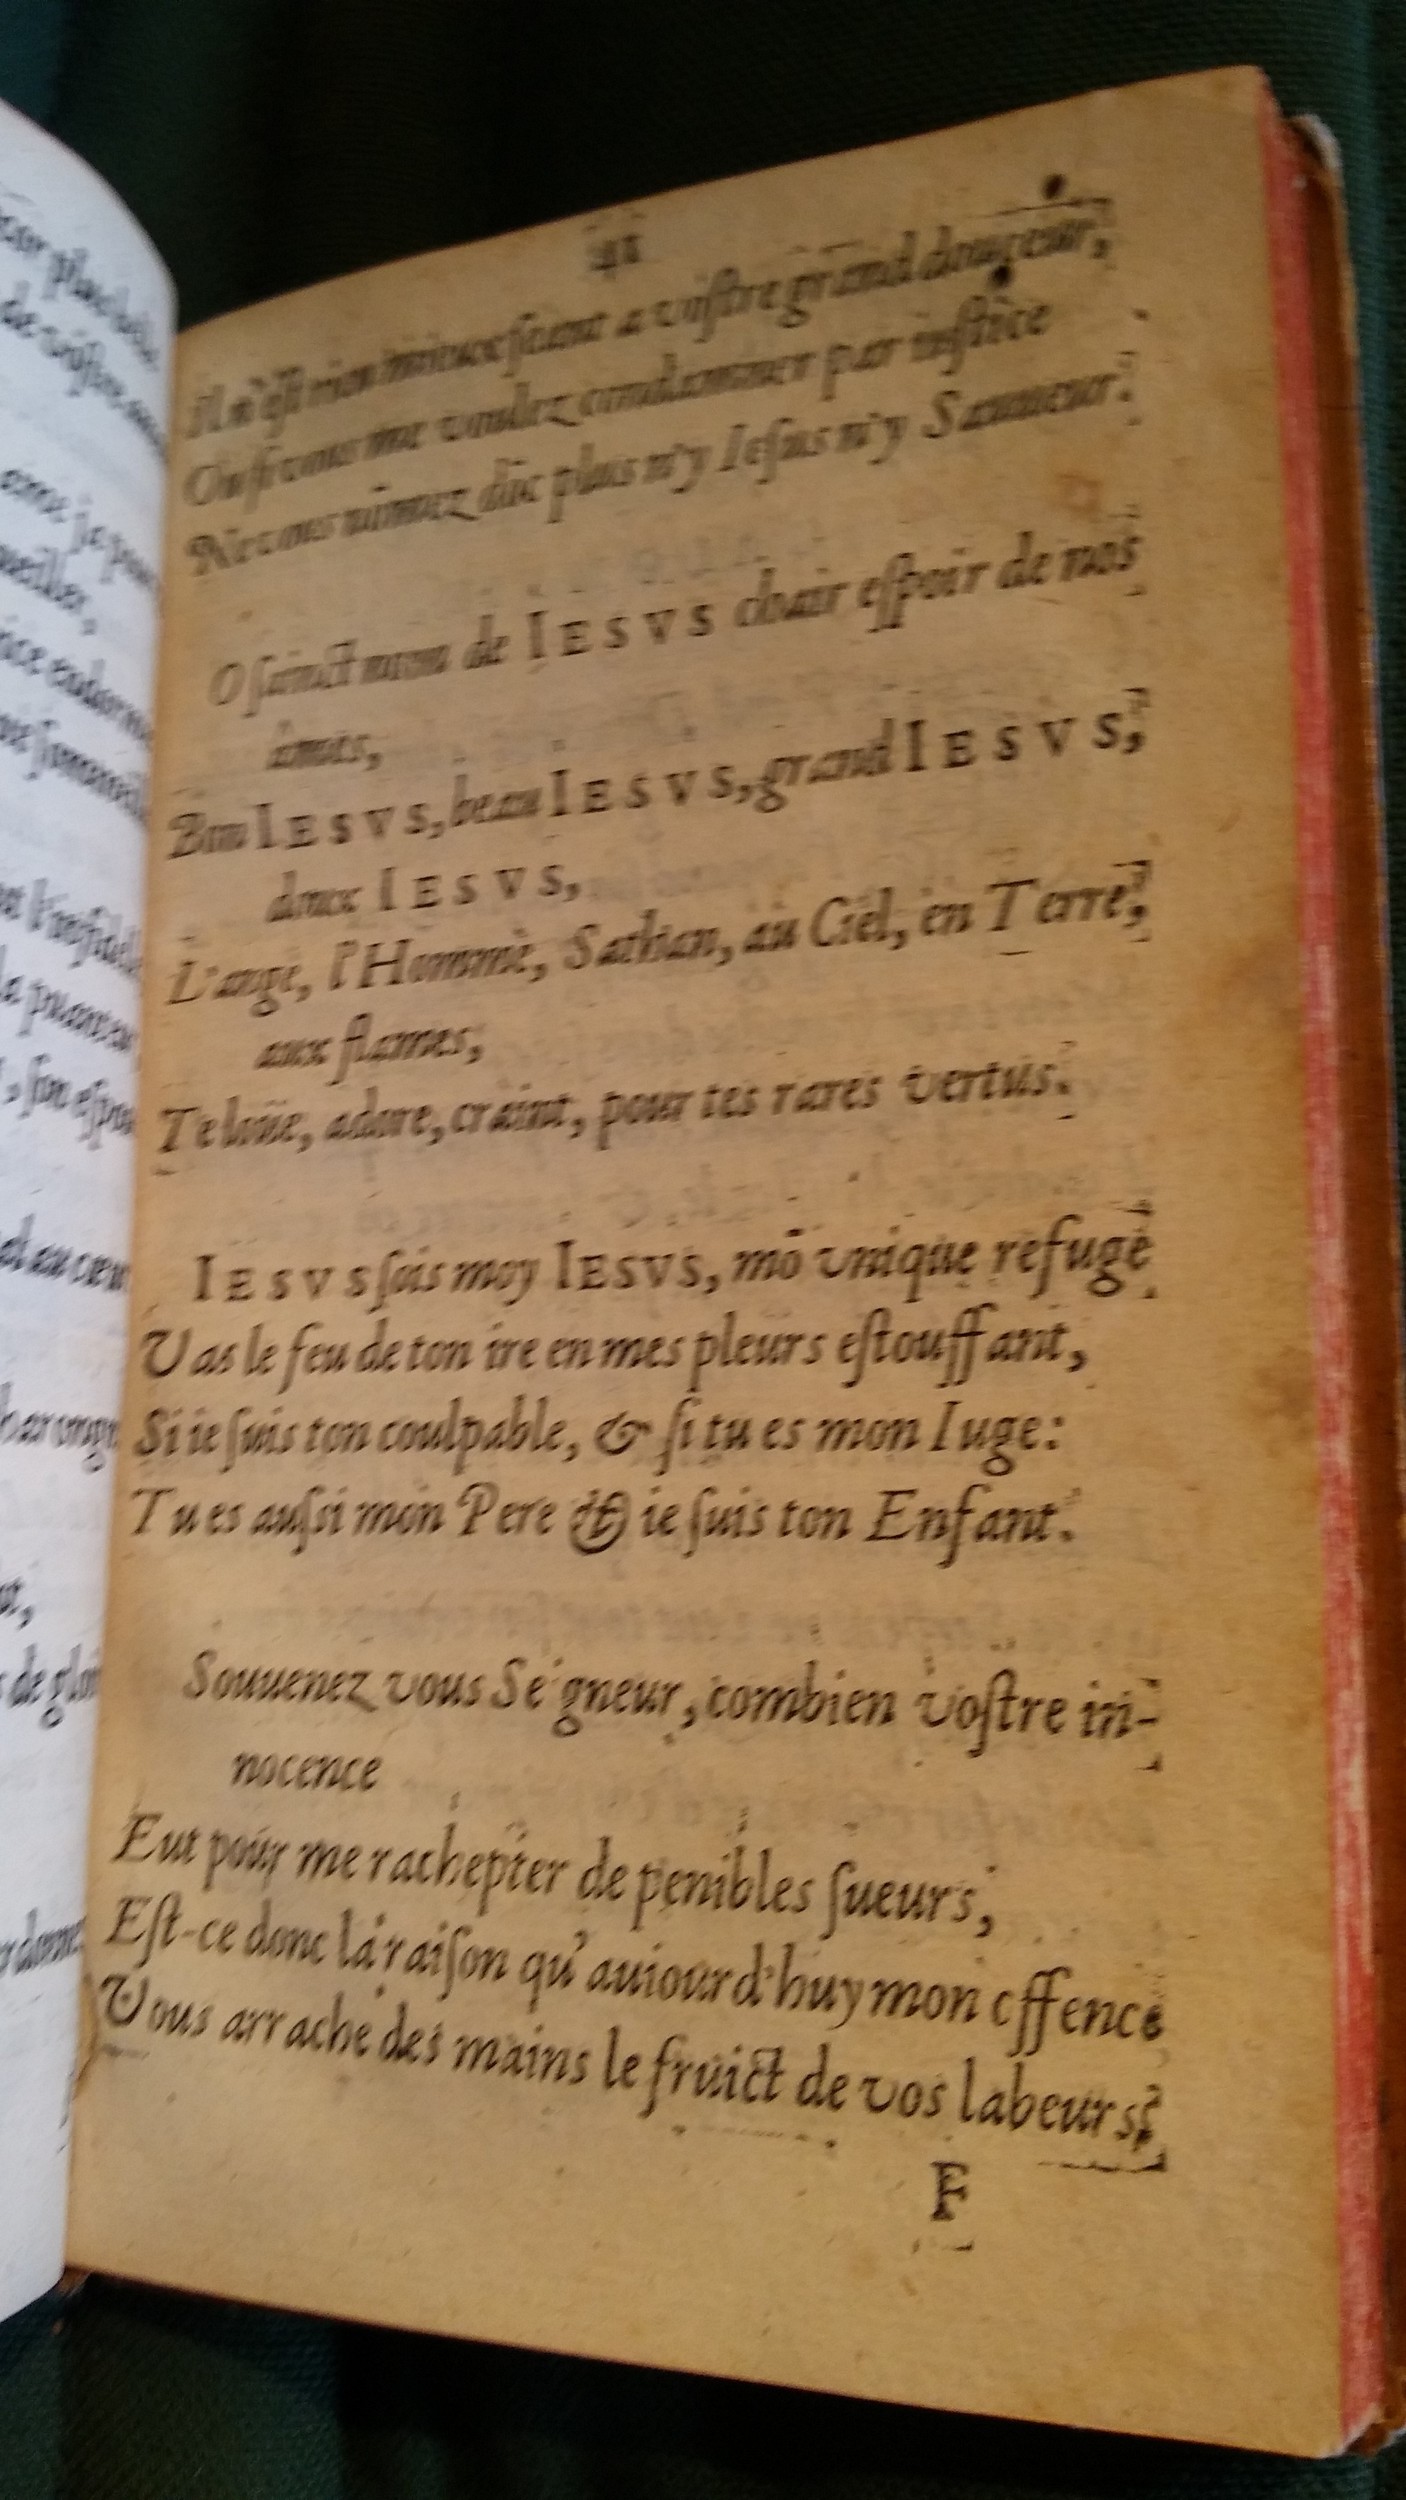 41
Il n'eſt rien mieux ſeant a voſtre grand douceur,
Ou ſi vous me voulez condamner par iuſtice
Ne vous nimez dōc plus n'y Ieſus n'y Sauueur.
O ſainct nom de IESVS chair eſpoir de nos
ames,
Bon IESVS, beau IESVS, grand IESVS,
doux IESVS,
L'ange, l'Homme, Sathan, au Ciel, en Terre,
aux flames,
Te loüe, adore, craint, pour tes rares vertus.
IESVS ſois moy IESVS, mō vnique refuge
Vas le feu de ton ire en mes pleurs eſtouffant,
Si ie ſuis ton coulpable, & ſi tu es mon Iuge:
Tu es auſsi mon Pere & ie ſuis ton Enfant.
Souuenez vous Seigneur, combien voſtre in-
nocence
Eut pour me rachepter de penibles ſueurs,
Eſt-ce donc la raiſon qu'auiourd'huy mon offence
Vous arrache des mains le fruict de vos labeurs
F